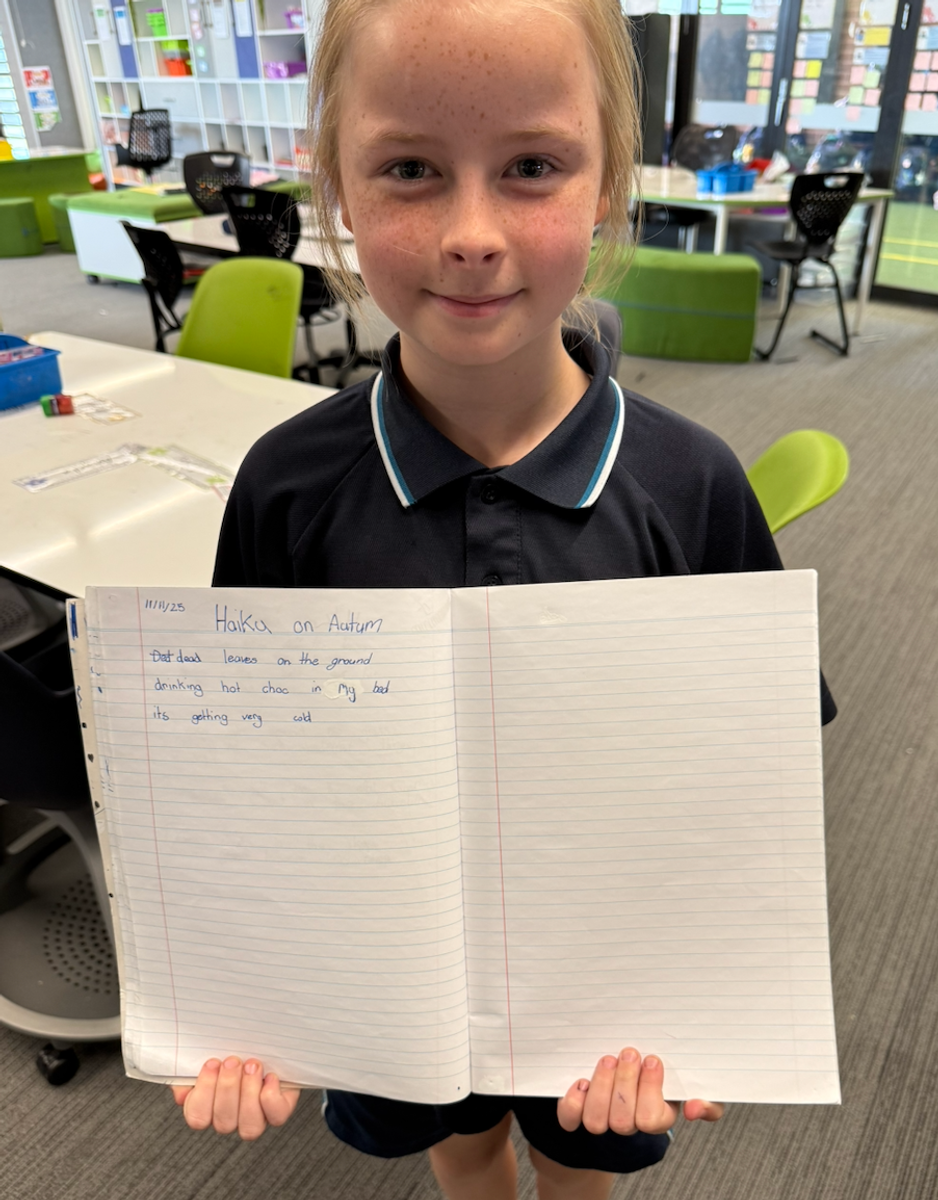 11/11/25
Haiku on Autum
Dat dead leaves on the ground
drinking hot choc in My bed
its getting very cold